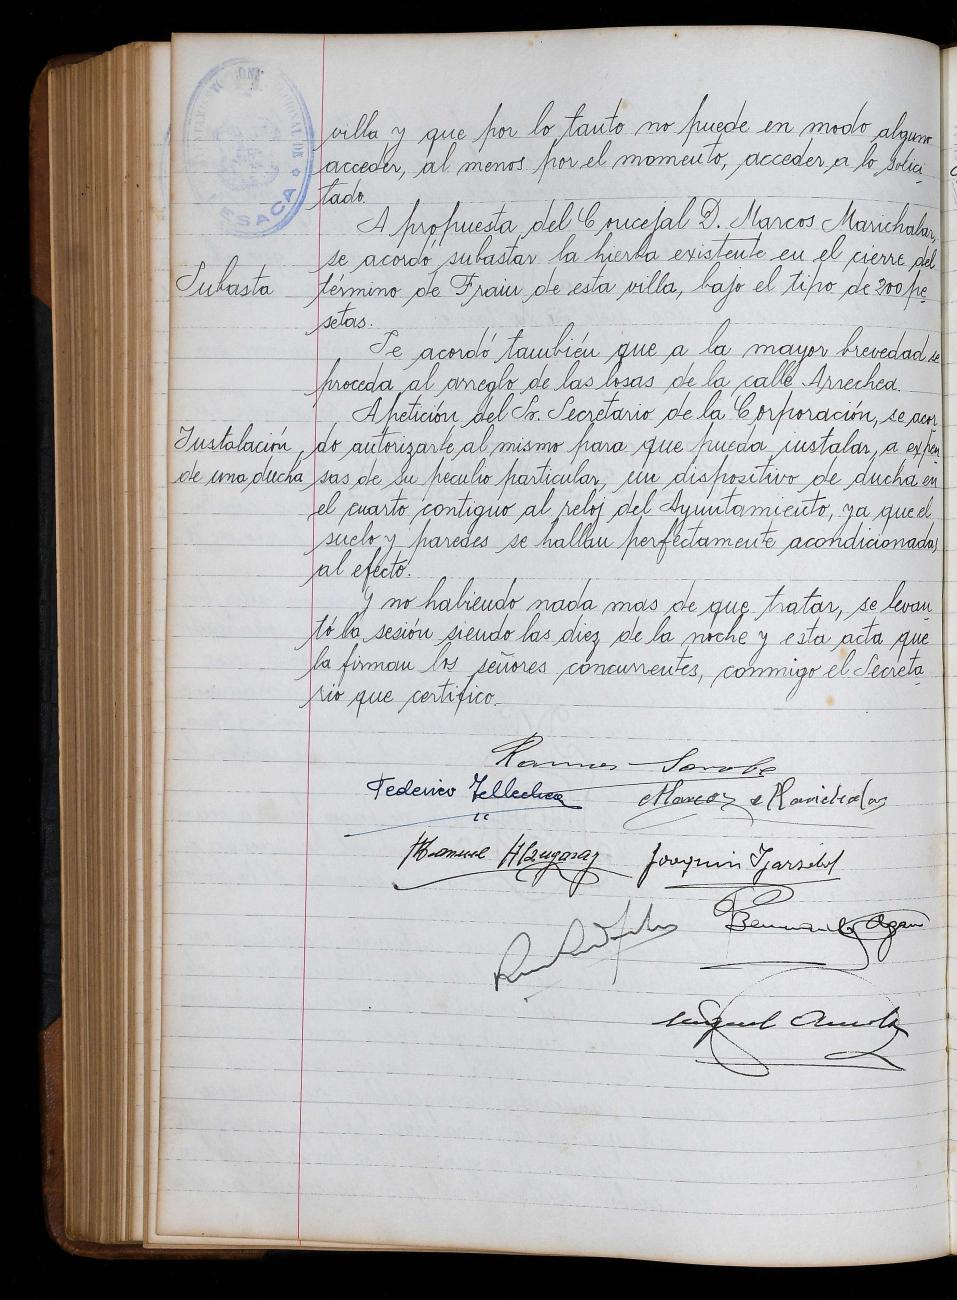 villa y que por lo tanto no puede en modo alguno
acceder, al menos por el momento, acceder a lo solici
tado.
A propuesta del Concejal D. Marcos Marichalar,
se acordó subastar la hierba existente en el cierre del
Subasta
término de Frain de esta villa, bajo el tipo de 200 pe
setas.
Se acordó también que a la mayor brevedad se
proceda al arreglo de las losas de la calle Arrechea.
A petición del Sr. Secretario de la Corporación, se acor
Instalación
do autorizarle al mismo para que pueda instalar, a expen
de una ducha
sas de su peculio particular, un dispositivo de ducha en
el cuarto contiguo al reloj del Ayuntamiento, ya que el
suelo y paredes se hallan perfectamente acondicionados
al efecto.
Y no habiendo nada mas de que tratar, se levan
tó la sesión siendo las diez de la noche y esta acta que
la firman los señores concurrentes, conmigo el Secreta
rio que certifico.
Federico Tellechea
Marcos Marichalar
Manuel
Joaquin
Miguel
ESACA